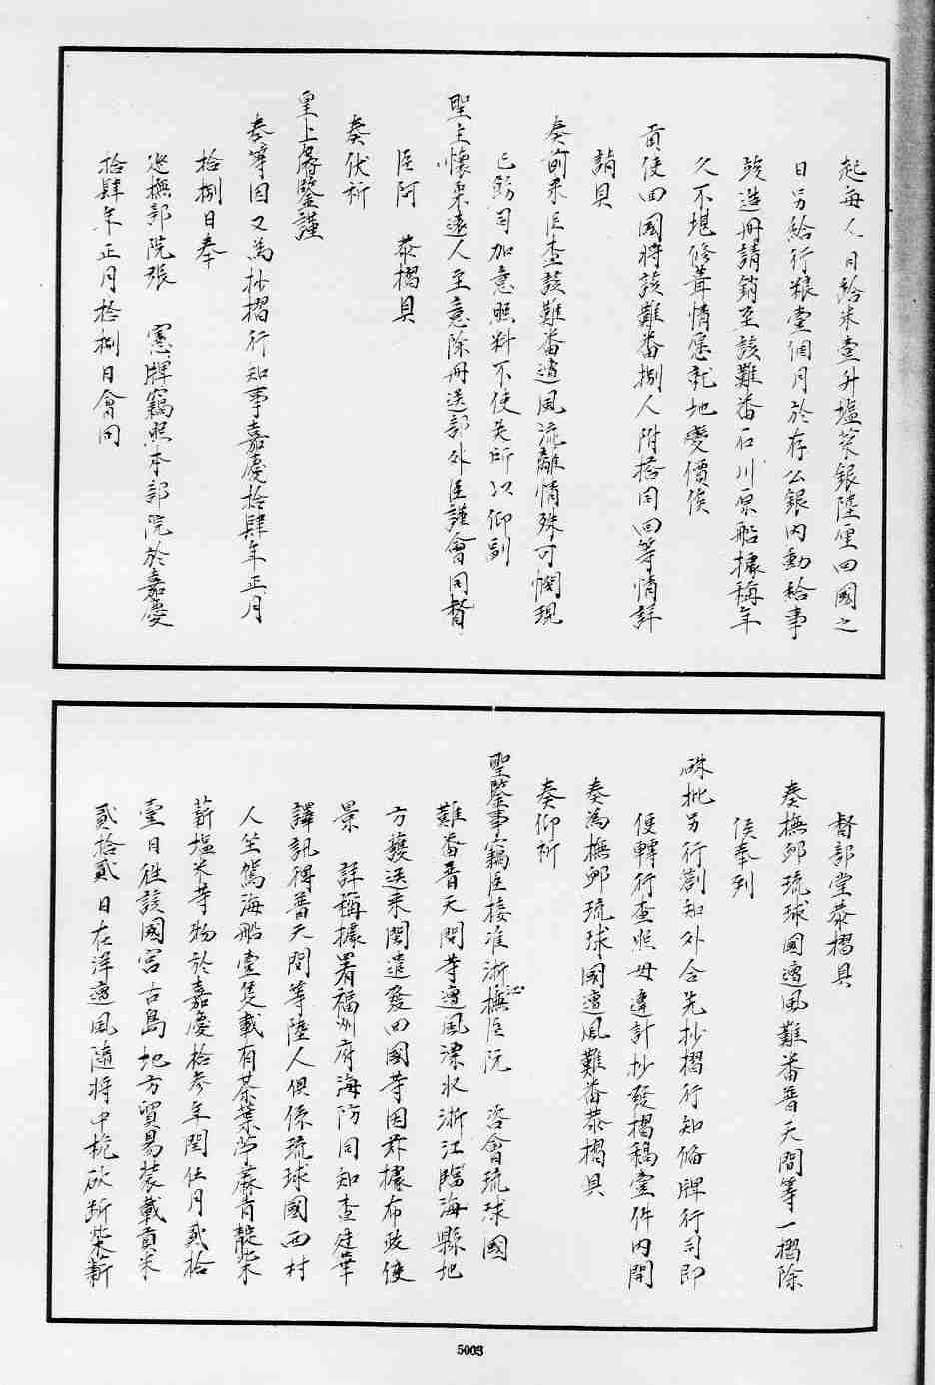 起每人日給米壹升塩菜銀陸厘回國之
日另給行粮壹個月於存公銀内動給事
竣造册請銷至該難番石川原船據稱年
久不堪修葺情愿就地變價俟
貢使回國將該難番捌人附搭同回等情詳
請具
奏前来臣查該難番遭風流離情殊可憫現
已飭司加意照料不使失所以仰副
聖主懷柔遠人至意除册送部外臣謹會同督
臣阿　恭摺具
奏伏祈
皇上睿鑒謹
奏等因又為抄摺行知事嘉慶拾肆年正月
拾捌日奉
巡撫部院張　憲牌竊照本部院於嘉慶
拾肆年正月拾捌日會同
督部堂恭摺具
奏撫卹琉球國遭風難番普天間等一摺除
俟奉到
硃批另行劄知外合先抄摺行知偹牌行司即
便轉行查照毋違計抄發摺稿壹件内開
奏為撫卹琉球國遭風難番恭摺具
奏仰祈
聖鑒事竊臣接准浙撫臣阮　咨會琉球國
難番普天間等遭風漂收浙江臨海縣地
方護送来閩遣發回國等因茲據布政使
景　詳稱據署福州府海防同知查廷華
譯訊得普天間等陸人俱係琉球國西村
人坐駕海船壹隻載有茶葉苧蔴青靛柴
薪塩米等物於嘉慶拾參年閏伍月貳拾
壹日徃該國宮古島地方貿易裝載貢米
貳拾貳日在洋遭風隨將中桅砍斷柴薪
5003